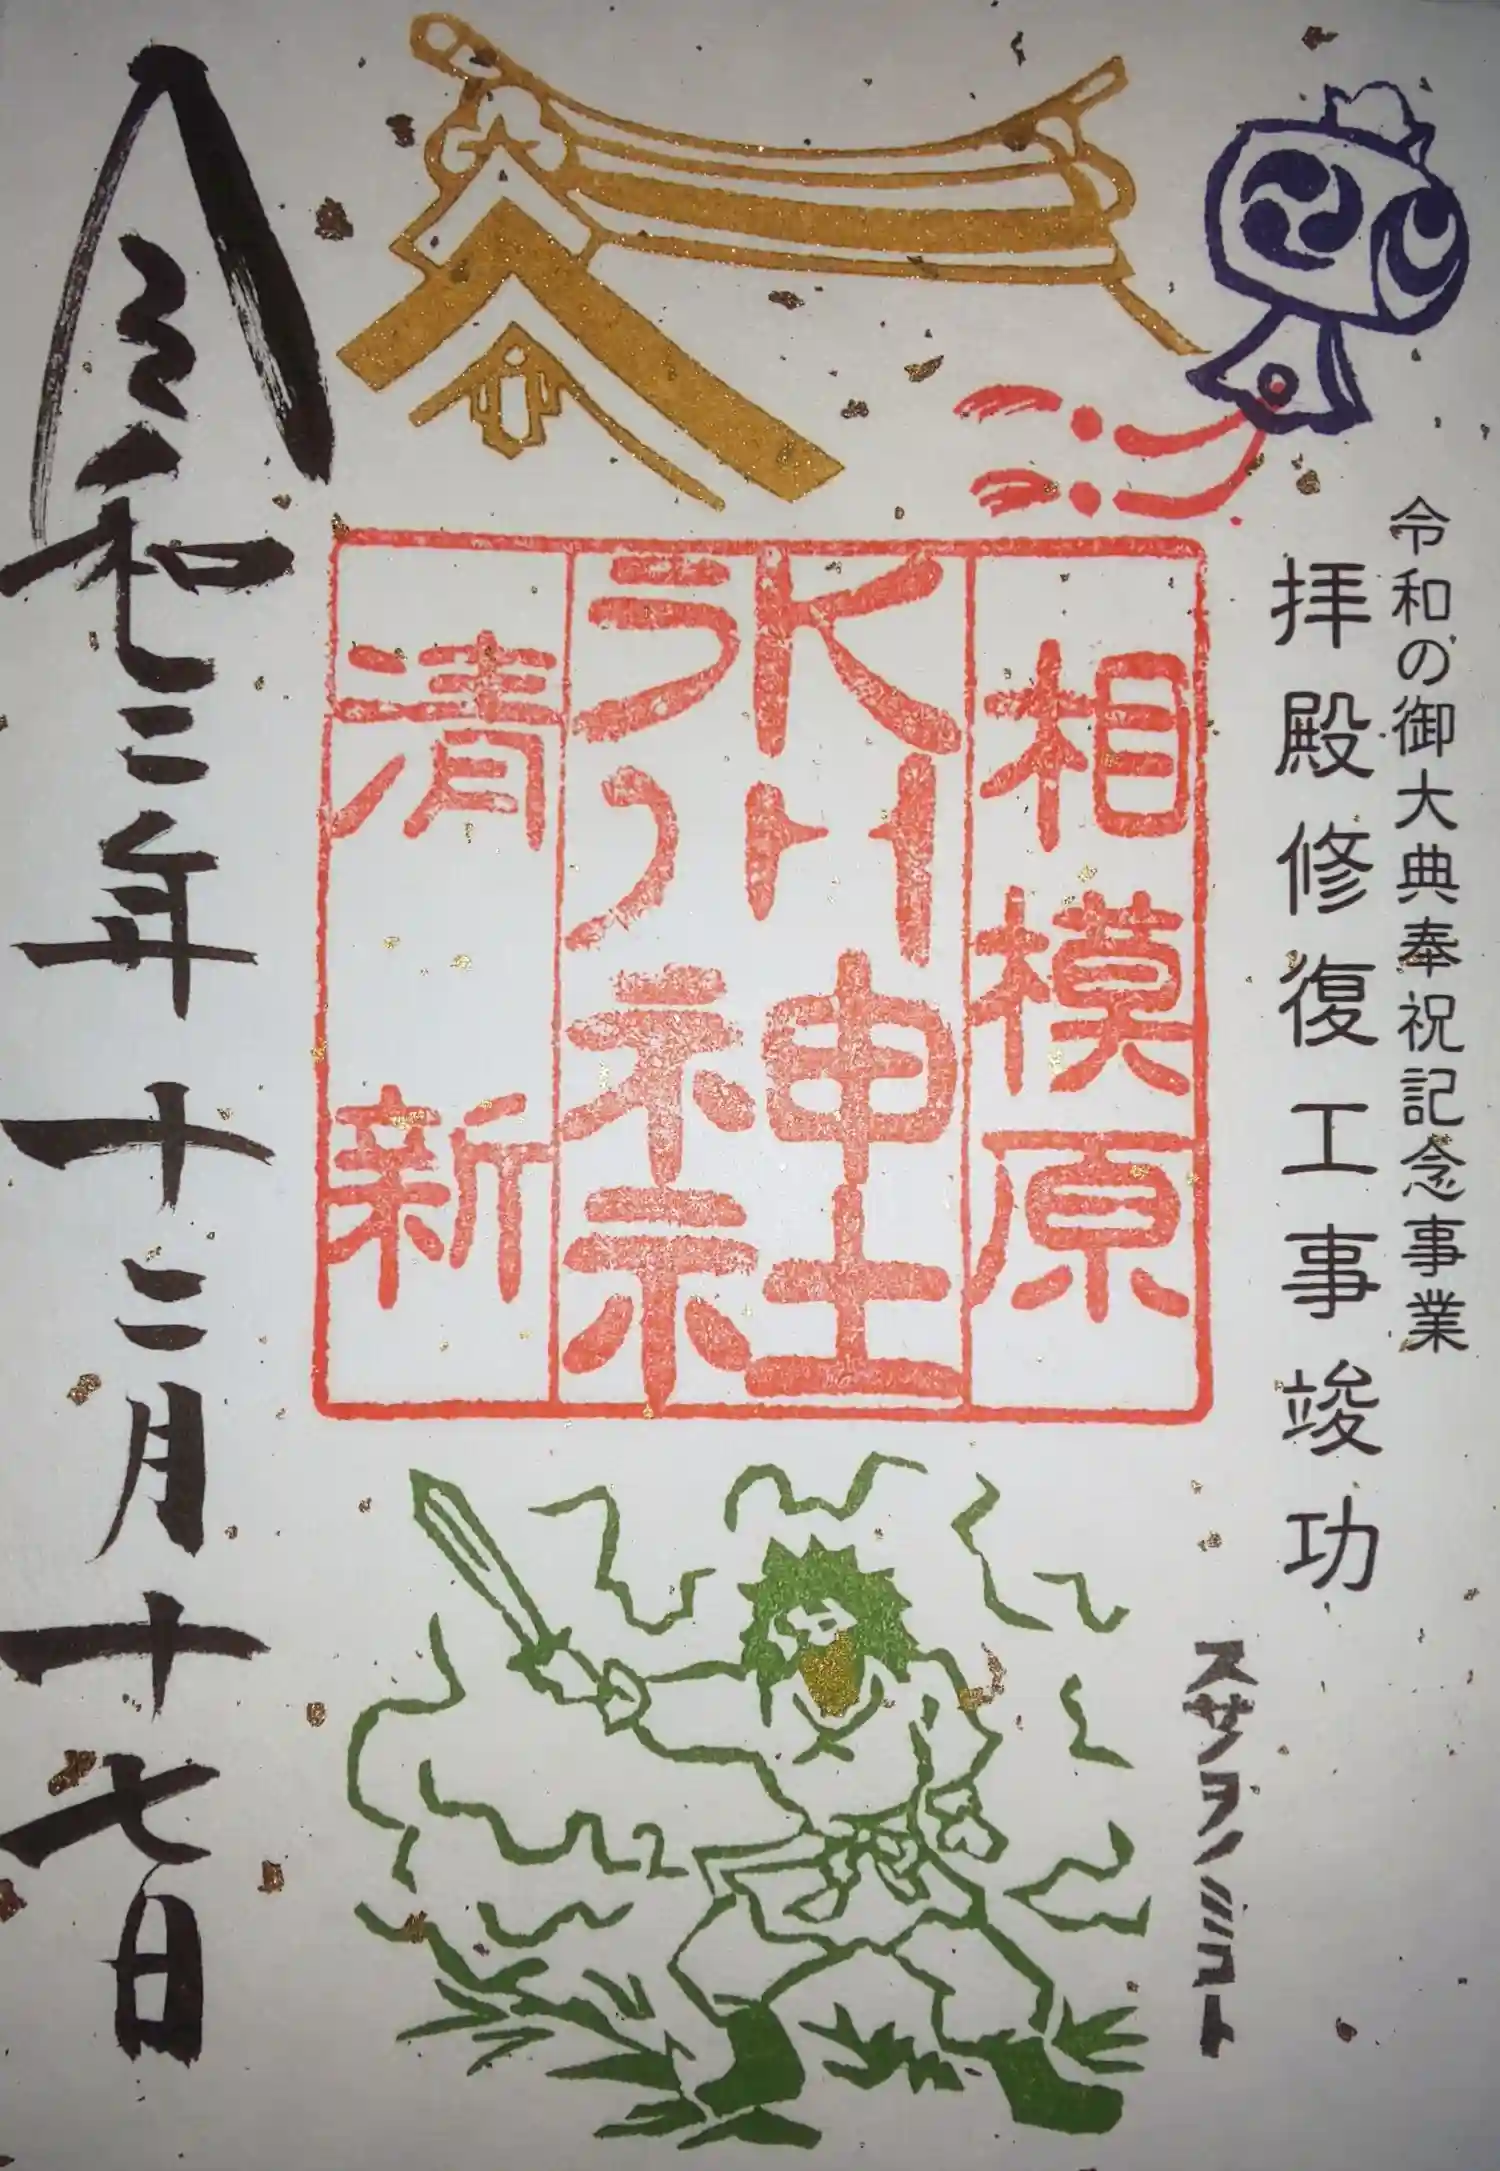 令和の御大典奉祝記念事業
拝殿修復工事竣功
スサノヲノミコト
相模原
氷川神社
清新
令和二年十二月十七日